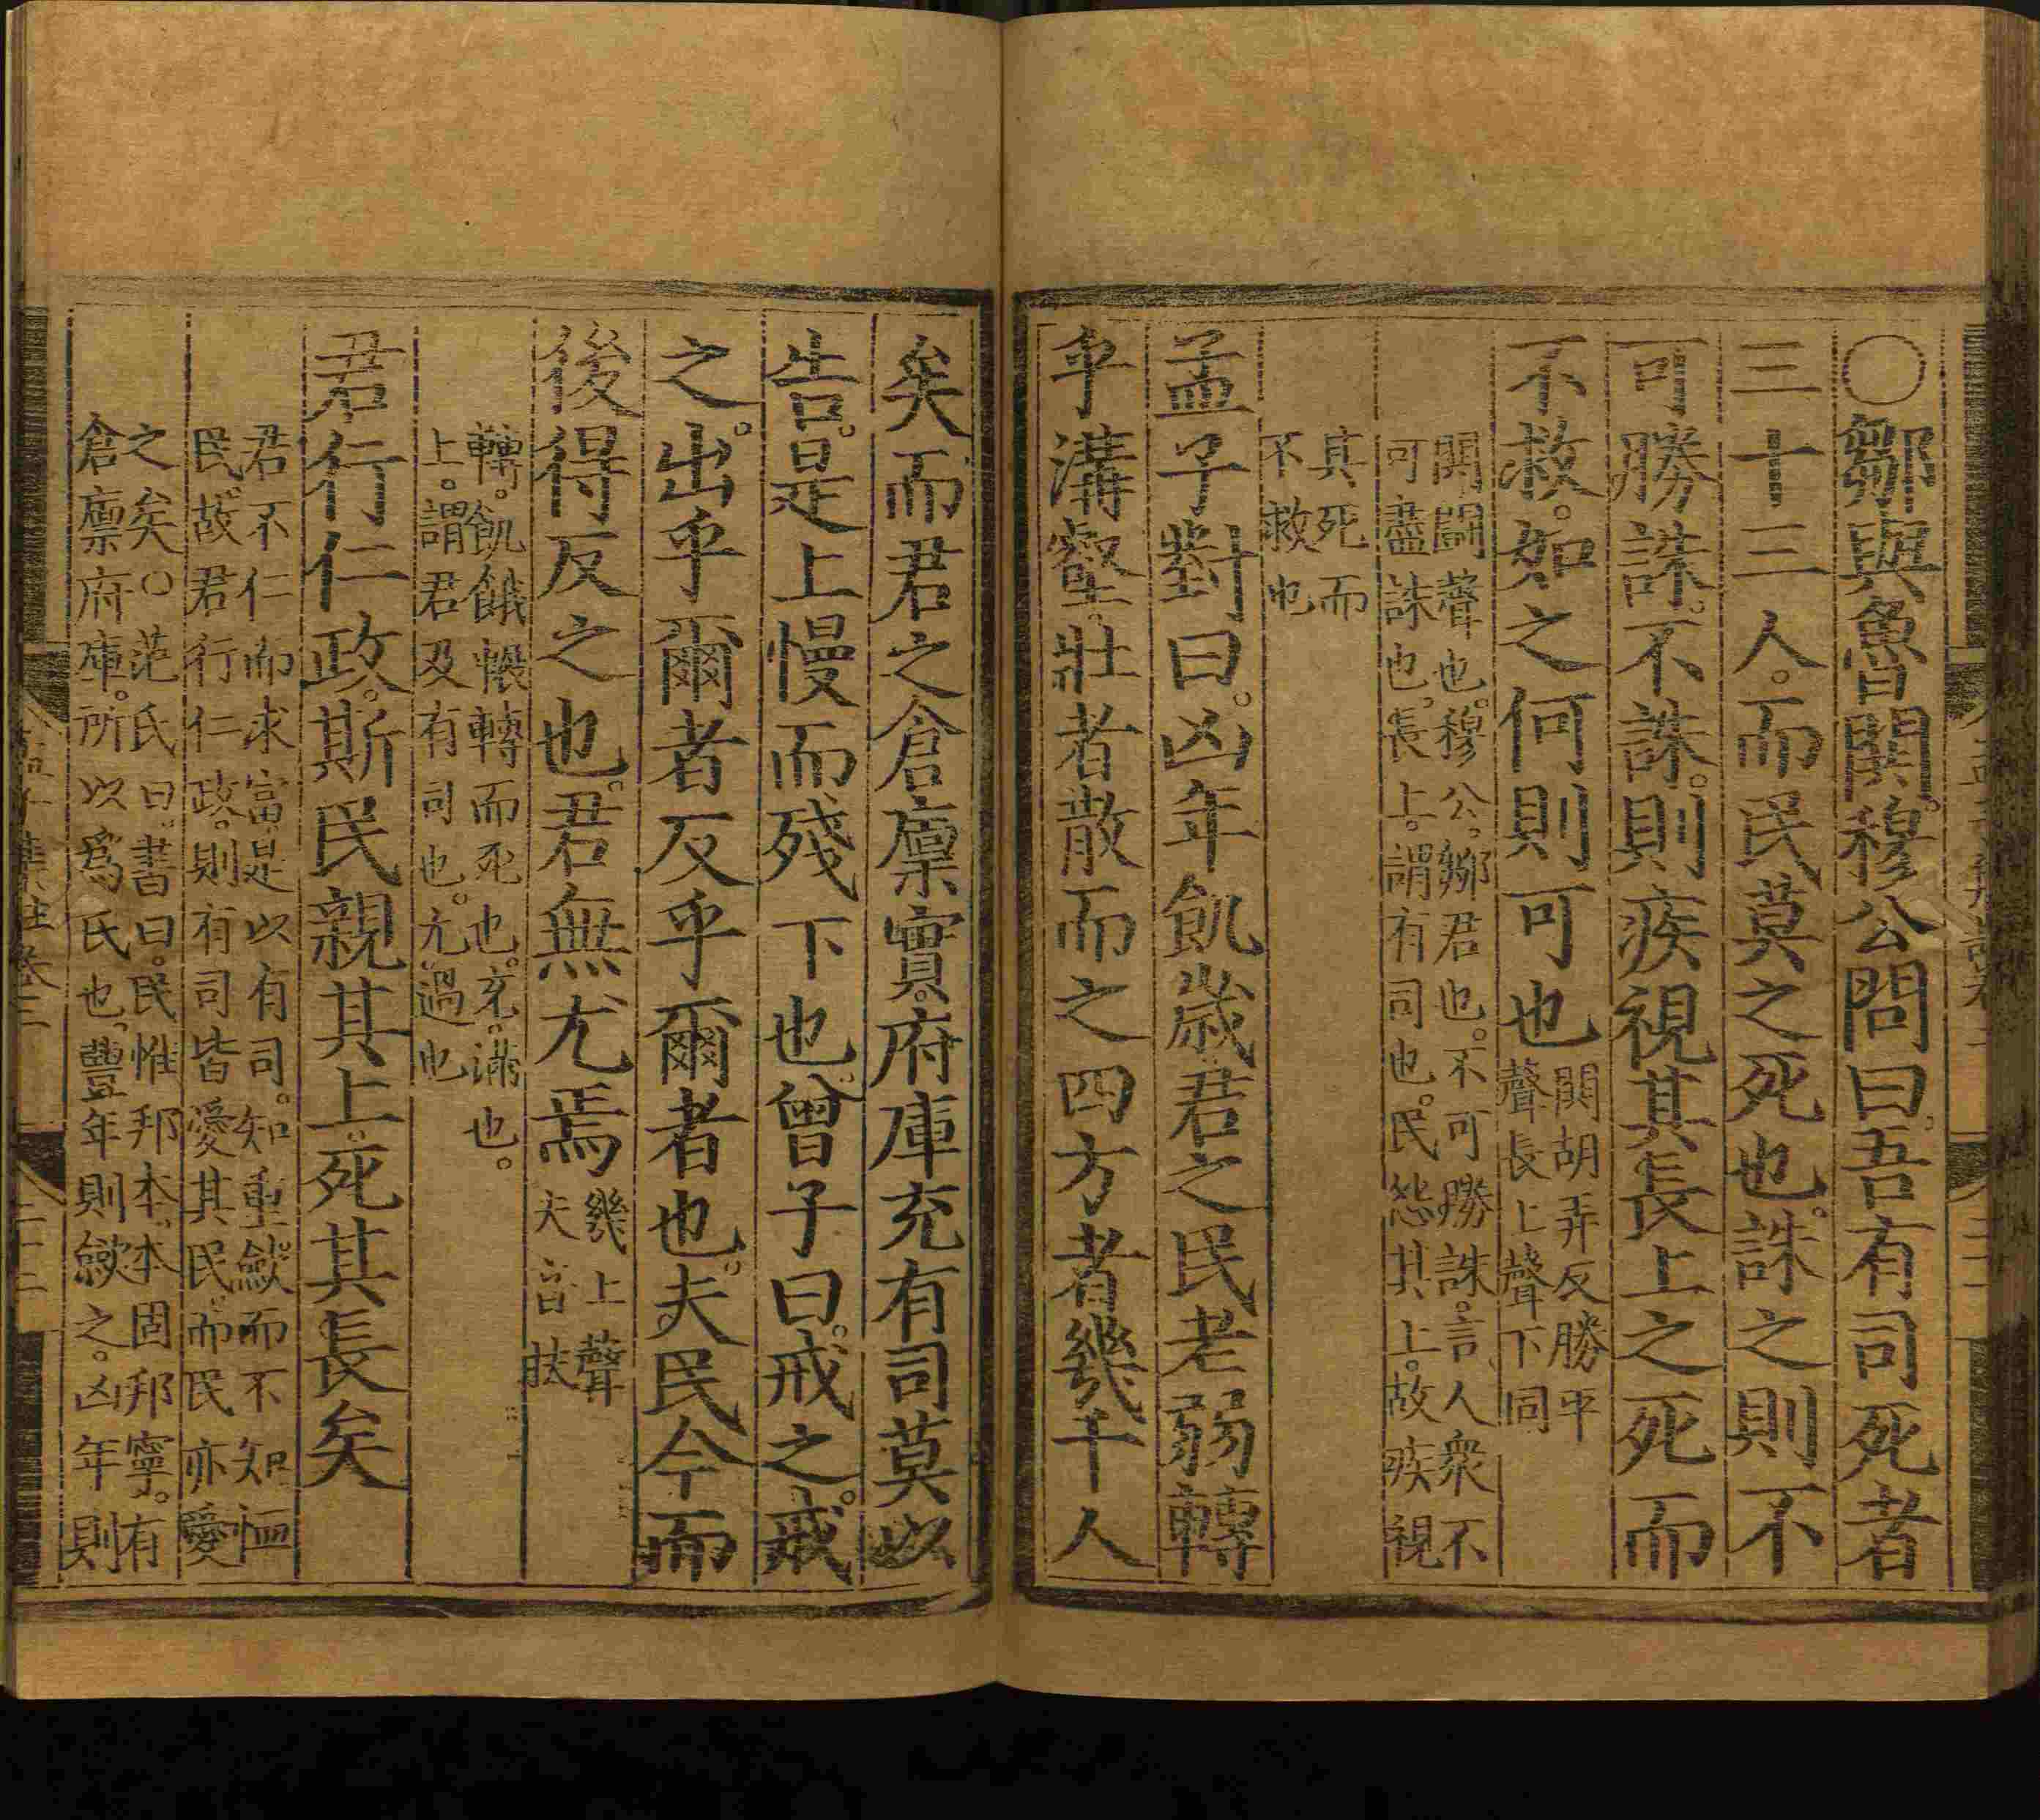 ○鄒與魯鬨。穆公問曰。吾有司死者
三十三人。而民莫之死也。誅之則不
可勝誅。不誅。則疾視其長上之死而
不救。如之何則可也
鬨胡弄反勝平
聲長上聲下同
鬨鬭聲也。穆公。鄒君也。不可勝誅。言人衆不
可盡誅也。長上。謂有司也。民怨其上。故疾視
其死而
不救也
孟子對曰。凶年飢歲君之民老弱轉
乎溝壑。壯者散而之四方者幾千人
矣而君之倉廩實。府庫充有司莫以
告。是上慢而殘下也。曾子曰。戒之。戒
之。出乎爾者反乎爾者也。夫民今而
後得反之也。君無尤焉
幾上聲
夫音扶
轉。飢餓輾轉而死也。充。滿也。
上。謂君及有司也。尤。過也
君行仁政。斯民親其上。死其長矣
君不仁而求富。是以有司。知重斂。而不知恤
民。故君行仁政。則有司皆愛其民。而民亦愛
之矣○范氏曰。書曰。民惟邦本。本固邦寧。有
倉廩府庫。所以爲民也。豐年則斂之。凶年則